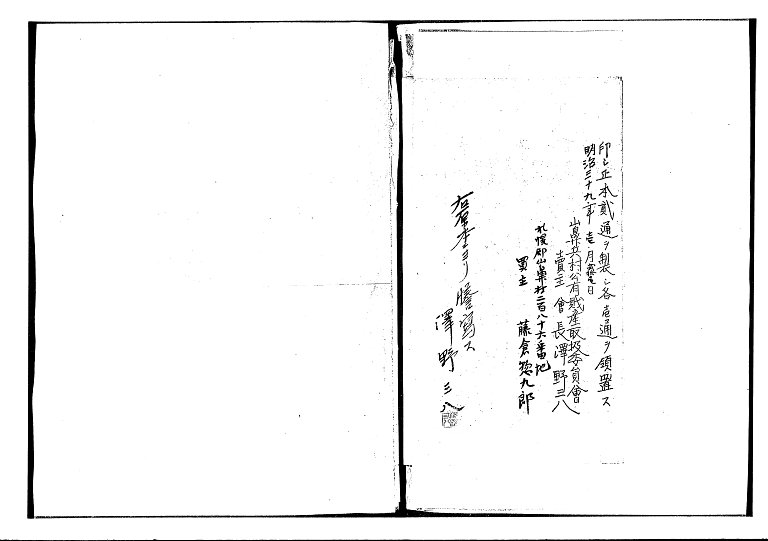 印シ正本貳通ヲ製シ各壱通ヲ領置ス
明治三十九年壱月 日
山鼻兵村公有財産取扱委員會
賣主 會長 澤野三八
札幌郡山鼻村二百八十六番地
買主 藤倉惣九郎
右原本ヨリ謄寫ス
澤野三八